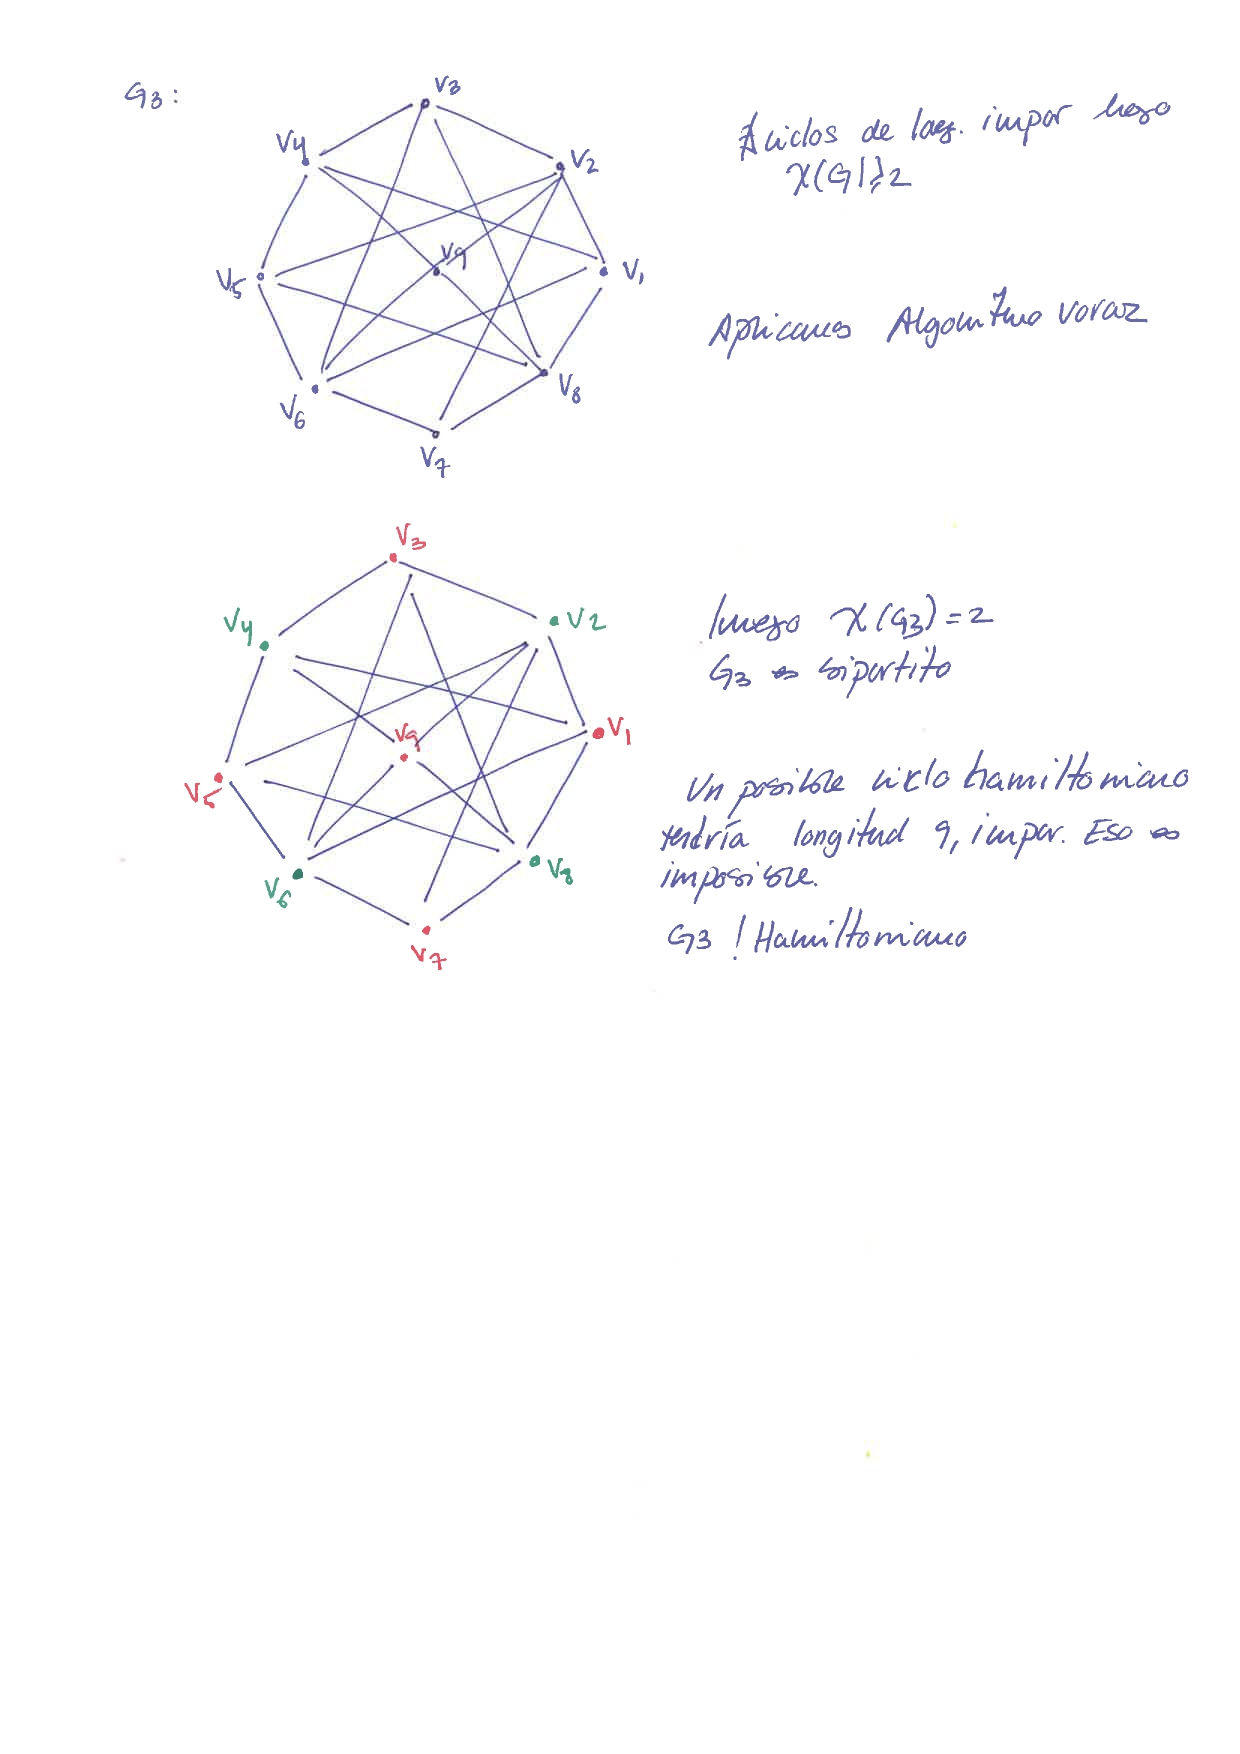 G3:
V3
V4
V2
V9
V5
V1
V6
V8
V7
∄ ciclos de long. impar luego
χ(G)≥2
Aplicamos Algoritmo voraz
V3
V4
V2
V9
V1
V5
V6
V8
V7
luego χ(G3)=2
G3 es bipartito
Un posible ciclo hamiltoniano
tendría longitud 9, impar. Eso es
imposible.
G3 ! Hamiltoniano